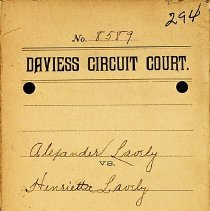 294
No. 8589
DAVIESS CIRCUIT COURT.
Alexander Lavely
VS.
Henrietta Lavely